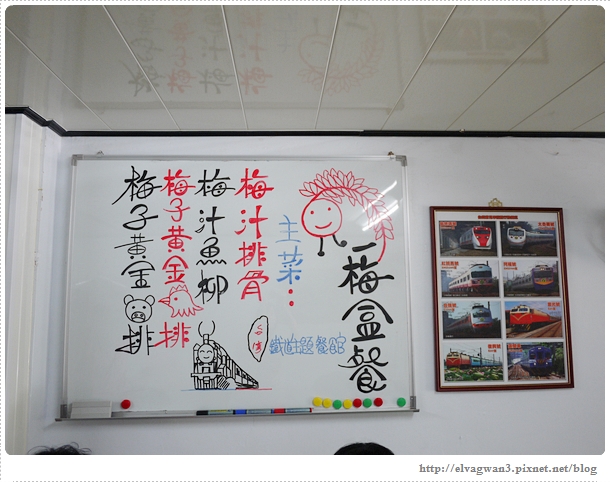 一梅盒餐
主菜：
梅汁排骨
梅汁魚柳
梅子黃金排
梅子黃金排
台湾
鐵道主題餐館
http://elvagwan3.pixnet.net/blog